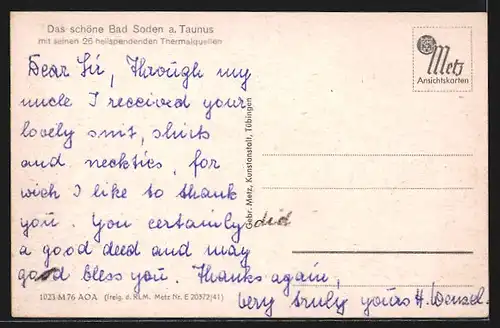 Das schöne Bad Soden a. Taunus
mit seinen 26 heilspendenden Thermalquellen
Metz
Ansichtskarten
Dear Sir, Through my
uncle I received your
lovely suit, shirts
and neckties, for
wich I like to thank
you. You certainly did
a good deed and may
good bless you. Thanks again,
very truly yours H. Wensel.
Gebr. Metz, Kunstanstalt, Tübingen
1023 M 76 AOA (freig. d. RLM. Metz Nr. E 20372/41)